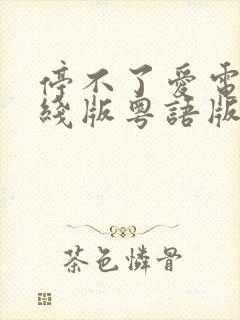 停不了愛電
綫版粵語版
茶色憐骨